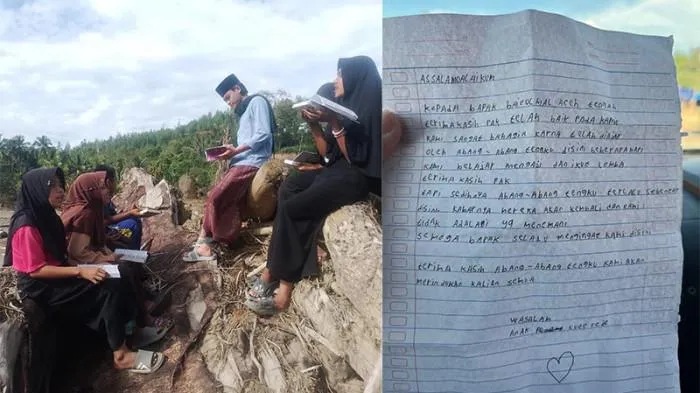 ASSALAMUALAIKUM
KEPADA BAPAK BAITULMAL ACEH TENGAH
TERIMAKASIH PAK TELAH BAIK PADA KAMI
KAMI SANGAT BAHAGIA KARNA TELAH DIAJAR
OLEH ABANG-ABANG TENGKU DISINI BEBERAPAHARI
KAMI BELAJAR MENGAJI DAN IKUT LOMBA
TERIMA KASIH PAK
TAPI SEDIHNYA ABANG-ABANG TENGKU TERLALU SEBENTAR
DISINI KABARNYA MEREKA AKAN KEMBALI DAN KAMI
TIDAK ADALAGI YG MENEMANI
SEMOGA BAPAK SELALU MENGINGAT KAMI DISINI
TERIMA KASIH ABANG-ABANG TENGKU KAMI AKAN
MERINDUKAN KALIAN SEMUA
WASALAM
ANAK KUTE REJE